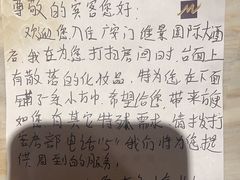 尊敬的宾客您好：
欢迎您入住广安门维景国际大酒
店，我在为您打扫房间时，台面上
有散落的化妆品，特为您在下面
铺了条小方巾，希望给您带来方便
如您有其它特殊需求，请拨打
客房部电话“5”我们将为您提
供周到的服务。